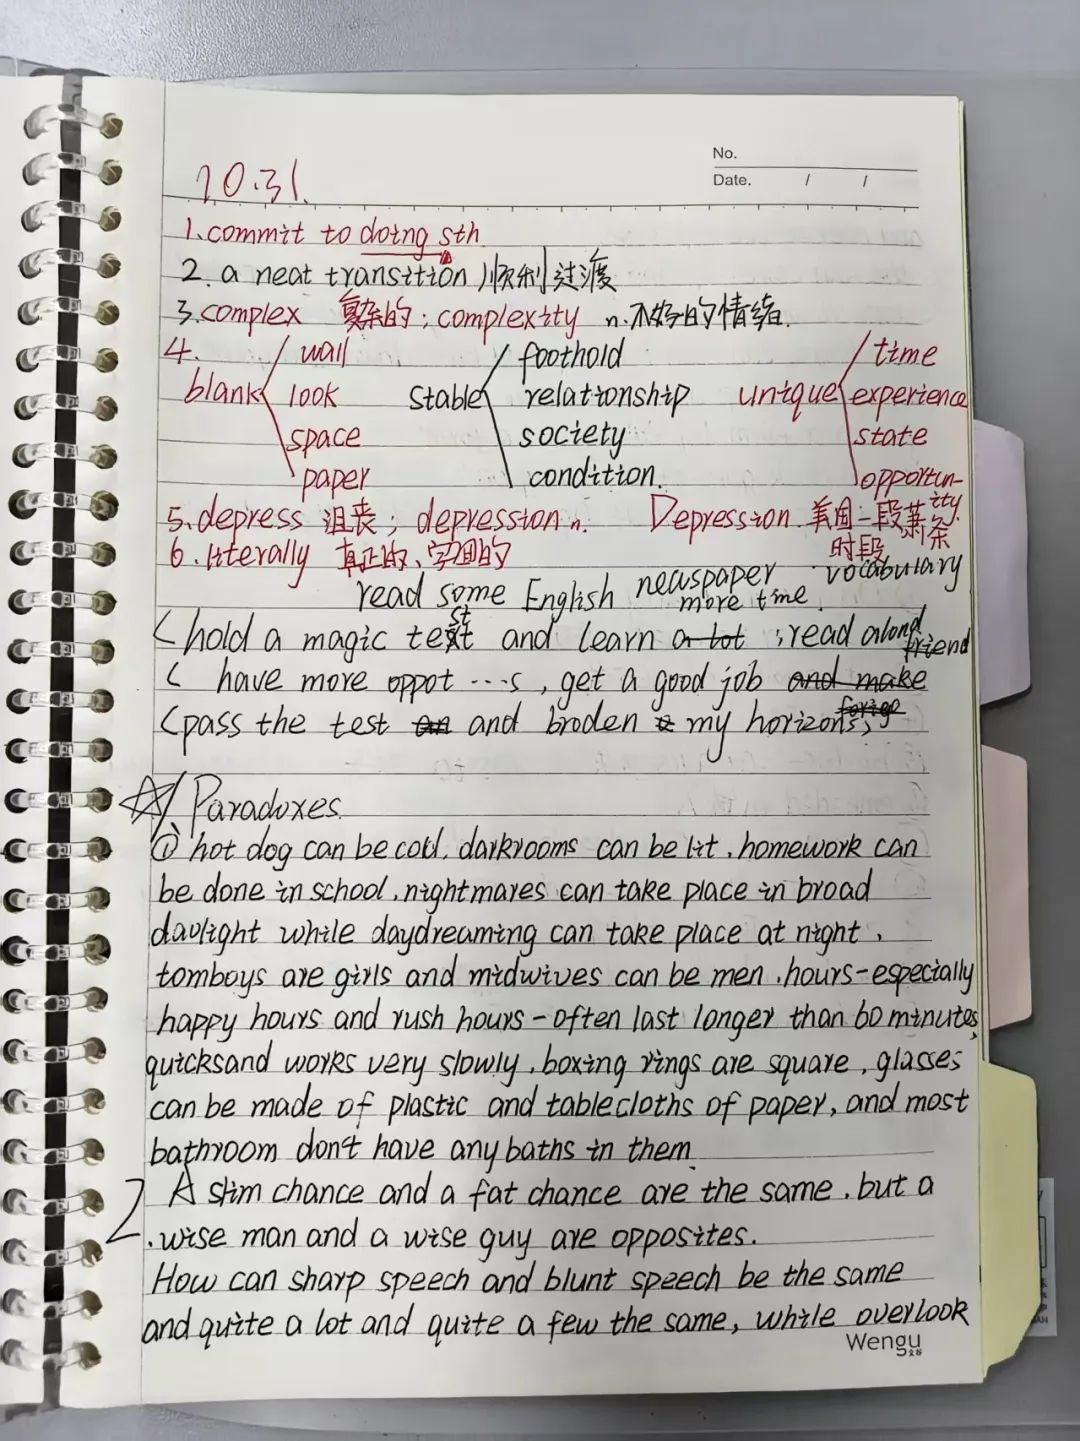 No.
Date. / /
10.31.
1.commit to doing sth
2. a neat transition 顺利过渡
3.complex 复杂的; complexity n.不好的情绪.
4. wall foothold time
blank look stable relationship unique experience
space society state
paper condition. opportun-
ity
5.depress 沮丧; depression n. Depression 美国一段萧条
时段
6.literally 真正的、字面的
read some English newspaper vocabulary
more time.
hold a magic test and learn a lot ;read alond
friend
have more oppot ...s, get a good job and make
pass the test an and broden my horizons,
Paradoxes.
① hot dog can be cold. darkrooms can be lit. homework can
be done in school. nightmares can take place in broad
davlight while daydreaming can take place at night.
tomboys are girls and midwives can be men. hours-especially
happy hours and rush hours-often last longer than 60 minutes,
quicksand works very slowly. boxing rings are square, glasses
can be made of plastic and tablecloths of paper, and most
bathroom don't have any baths in them.
2. A slim chance and a fat chance are the same. but a
wise man and a wise guy are opposites.
How can sharp speech and blunt speech be the same
and quite a lot and quite a few the same, while overlook
Wengu